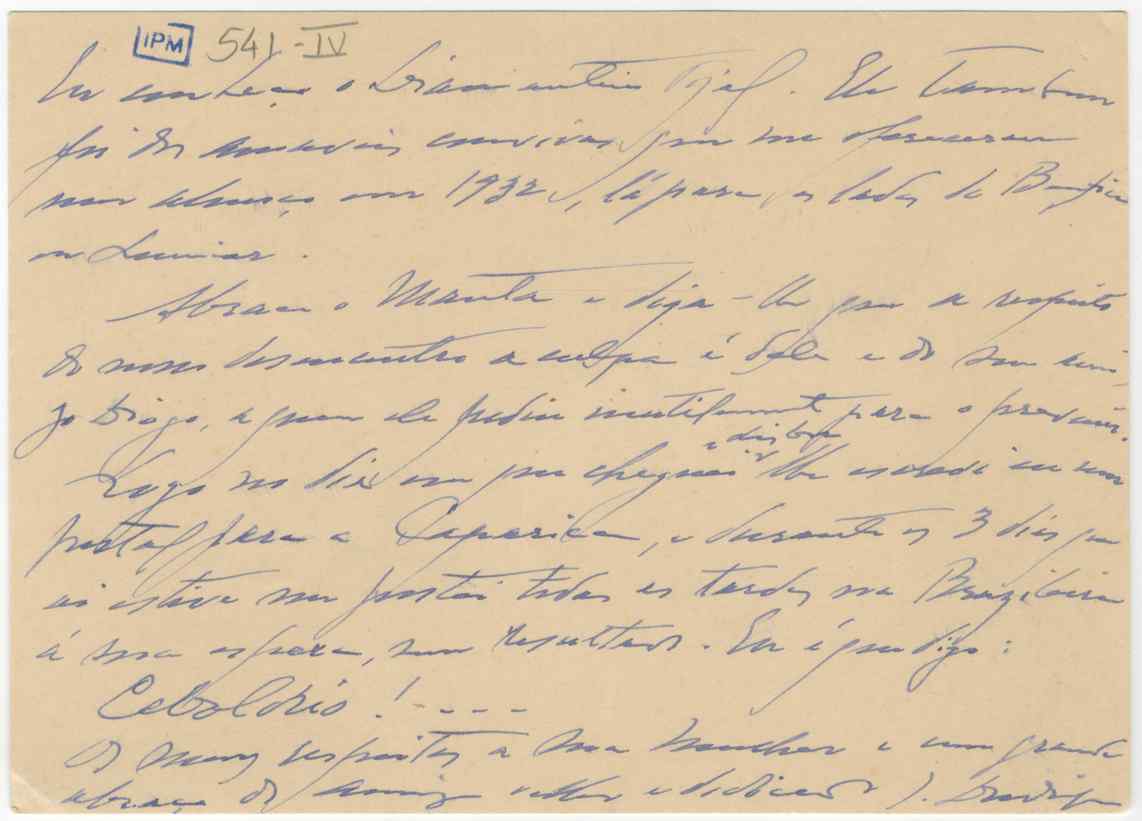 IPM 541-IV
Eu conheço o Diamantino Tojal. Ele tambem
foi dos amaveis convivas que me ofereceram
num almoço em 1932, lá para os lados de Bemfica
ou Lumiar.
Abrace o Manta e diga-lhe que a respeito
do nosso desencontro a culpa é dele e do seu ami-
go Diogo, a quem ele pediu inutilmente para o prevenir.
Logo no dia em que cheguei lhe escrevi eu um
postal para a Caparica, e durante os 3 dias que
ai estive me postei todas as tardes na Brazileira
á sua espera, sem resultado. Eu é que digo:
Cebolório! - - - -
Os meus respeitos a sua mulher e um grande
abraço do amigo velho e dedicado